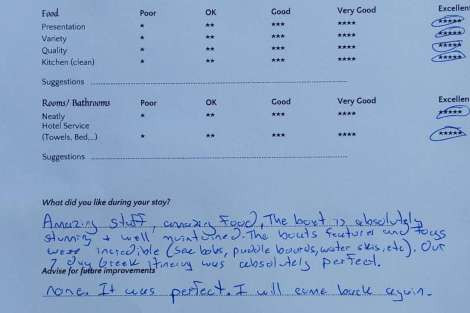 Food Poor OK Good Very Good Excellent
Presentation * ** *** **** *****
Variety * ** *** **** *****
Quality * ** *** **** *****
Kitchen (clean) * ** *** **** *****
Suggestions
Rooms/Bathrooms Poor OK Good Very Good Excellent
Neatly * ** *** **** *****
Hotel Service
(Towels, Bed...) * ** *** **** *****
Suggestions
What did you like during your stay?
Amazing staff, amazing food, The boat is absolutely
stunning + well maintained. The boats features and toys
were incredible (sea bobs, paddle boards, water skis, etc). Our
7 day Greek itinerary was absolutely perfect.
Advise for future improvements
None. It was perfect. I will come back again.